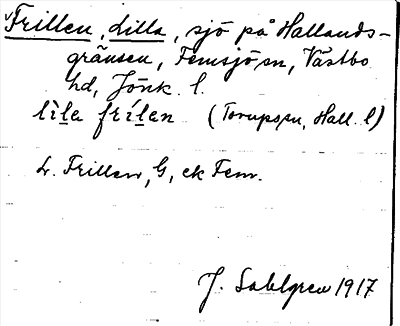 Frillen, Lilla, sjö på Hallands-
gränsen, Femsjö sn, Västbo
hd, Jönk. l.
lìl̲e frìl̲en (Torups sn, Hall. l)
L. Frillen, G, ek Fem.
J. Sahlgren 1917